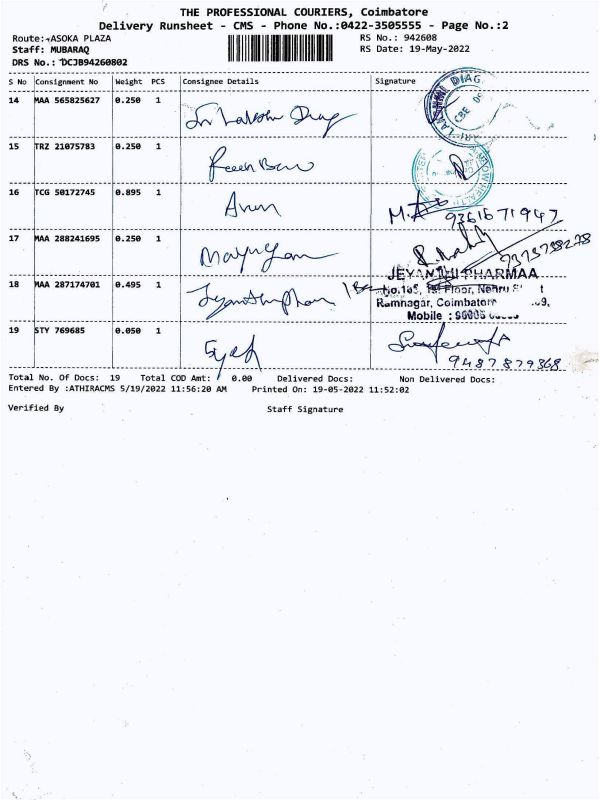 THE PROFESSIONAL COURIERS, Coimbatore
Delivery Runsheet - CMS - Phone No.:0422-3505555 - Page No.:2
Route: ASOKA PLAZA RS No.: 942608
Staff: MUBARAQ RS Date: 19-May-2022
DRS No.: DCJB94260802
S No Consignment No Weight PCS Consignee Details Signature
14 MAA 565825627 0.250 1 Sri Lakshmi Diag
15 TRZ 21075783 0.250 1
16 TCG 50172745 0.895 1 Arun 9361671947
17 MAA 288241695 0.250 1
18 MAA 287174701 0.495 1 Jeyanthi Pharm
JEYANTHI PHARMAA
No.105, 1st Floor, Nehru
Ramnagar, Coimbatore
Mobile :
19 STY 769685 0.050 1 9487879368
Total No. Of Docs: 19 Total COD Amt: 0.00 Delivered Docs: Non Delivered Docs:
Entered By :ATHIRACMS 5/19/2022 11:56:20 AM Printed On: 19-05-2022 11:52:02
Verified By Staff Signature